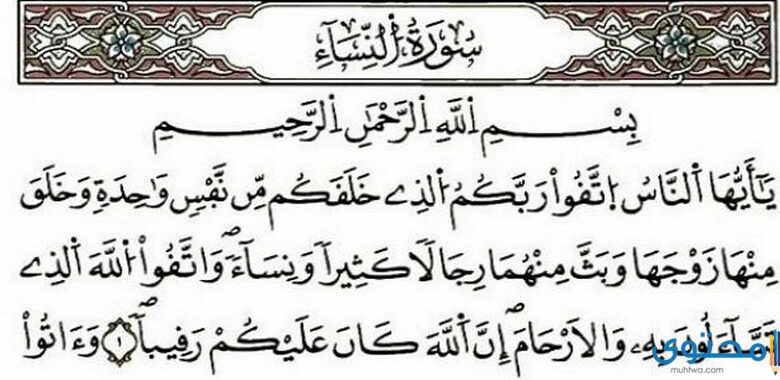 سُورَةُ النِّسَآءِ
بِسْمِ اللَّهِ الرَّحْمَٰنِ الرَّحِيمِ
يَٰٓأَيُّهَا النَّاسُ اتَّقُواْ رَبَّكُمُ الذِے خَلَقَكُم مِّن نَّفْسٖ وَٰحِدَةٖ وَخَلَقَ
مِنْهَا زَوْجَهَا وَبَثَّ مِنْهُمَا رِجَالاٗ كَثِيراٗ وَنِسَآءٗۖ وَاتَّقُواْ اللَّهَ الذِے
تَسَّآءَلُونَ بِهِۦ وَالَارْحَامَۖ إِنَّ اللَّهَ كَانَ عَلَيْكُمْ رَقِيباٗۖ ١ وَءَاتُواْ
محتوى
muhtwa.com